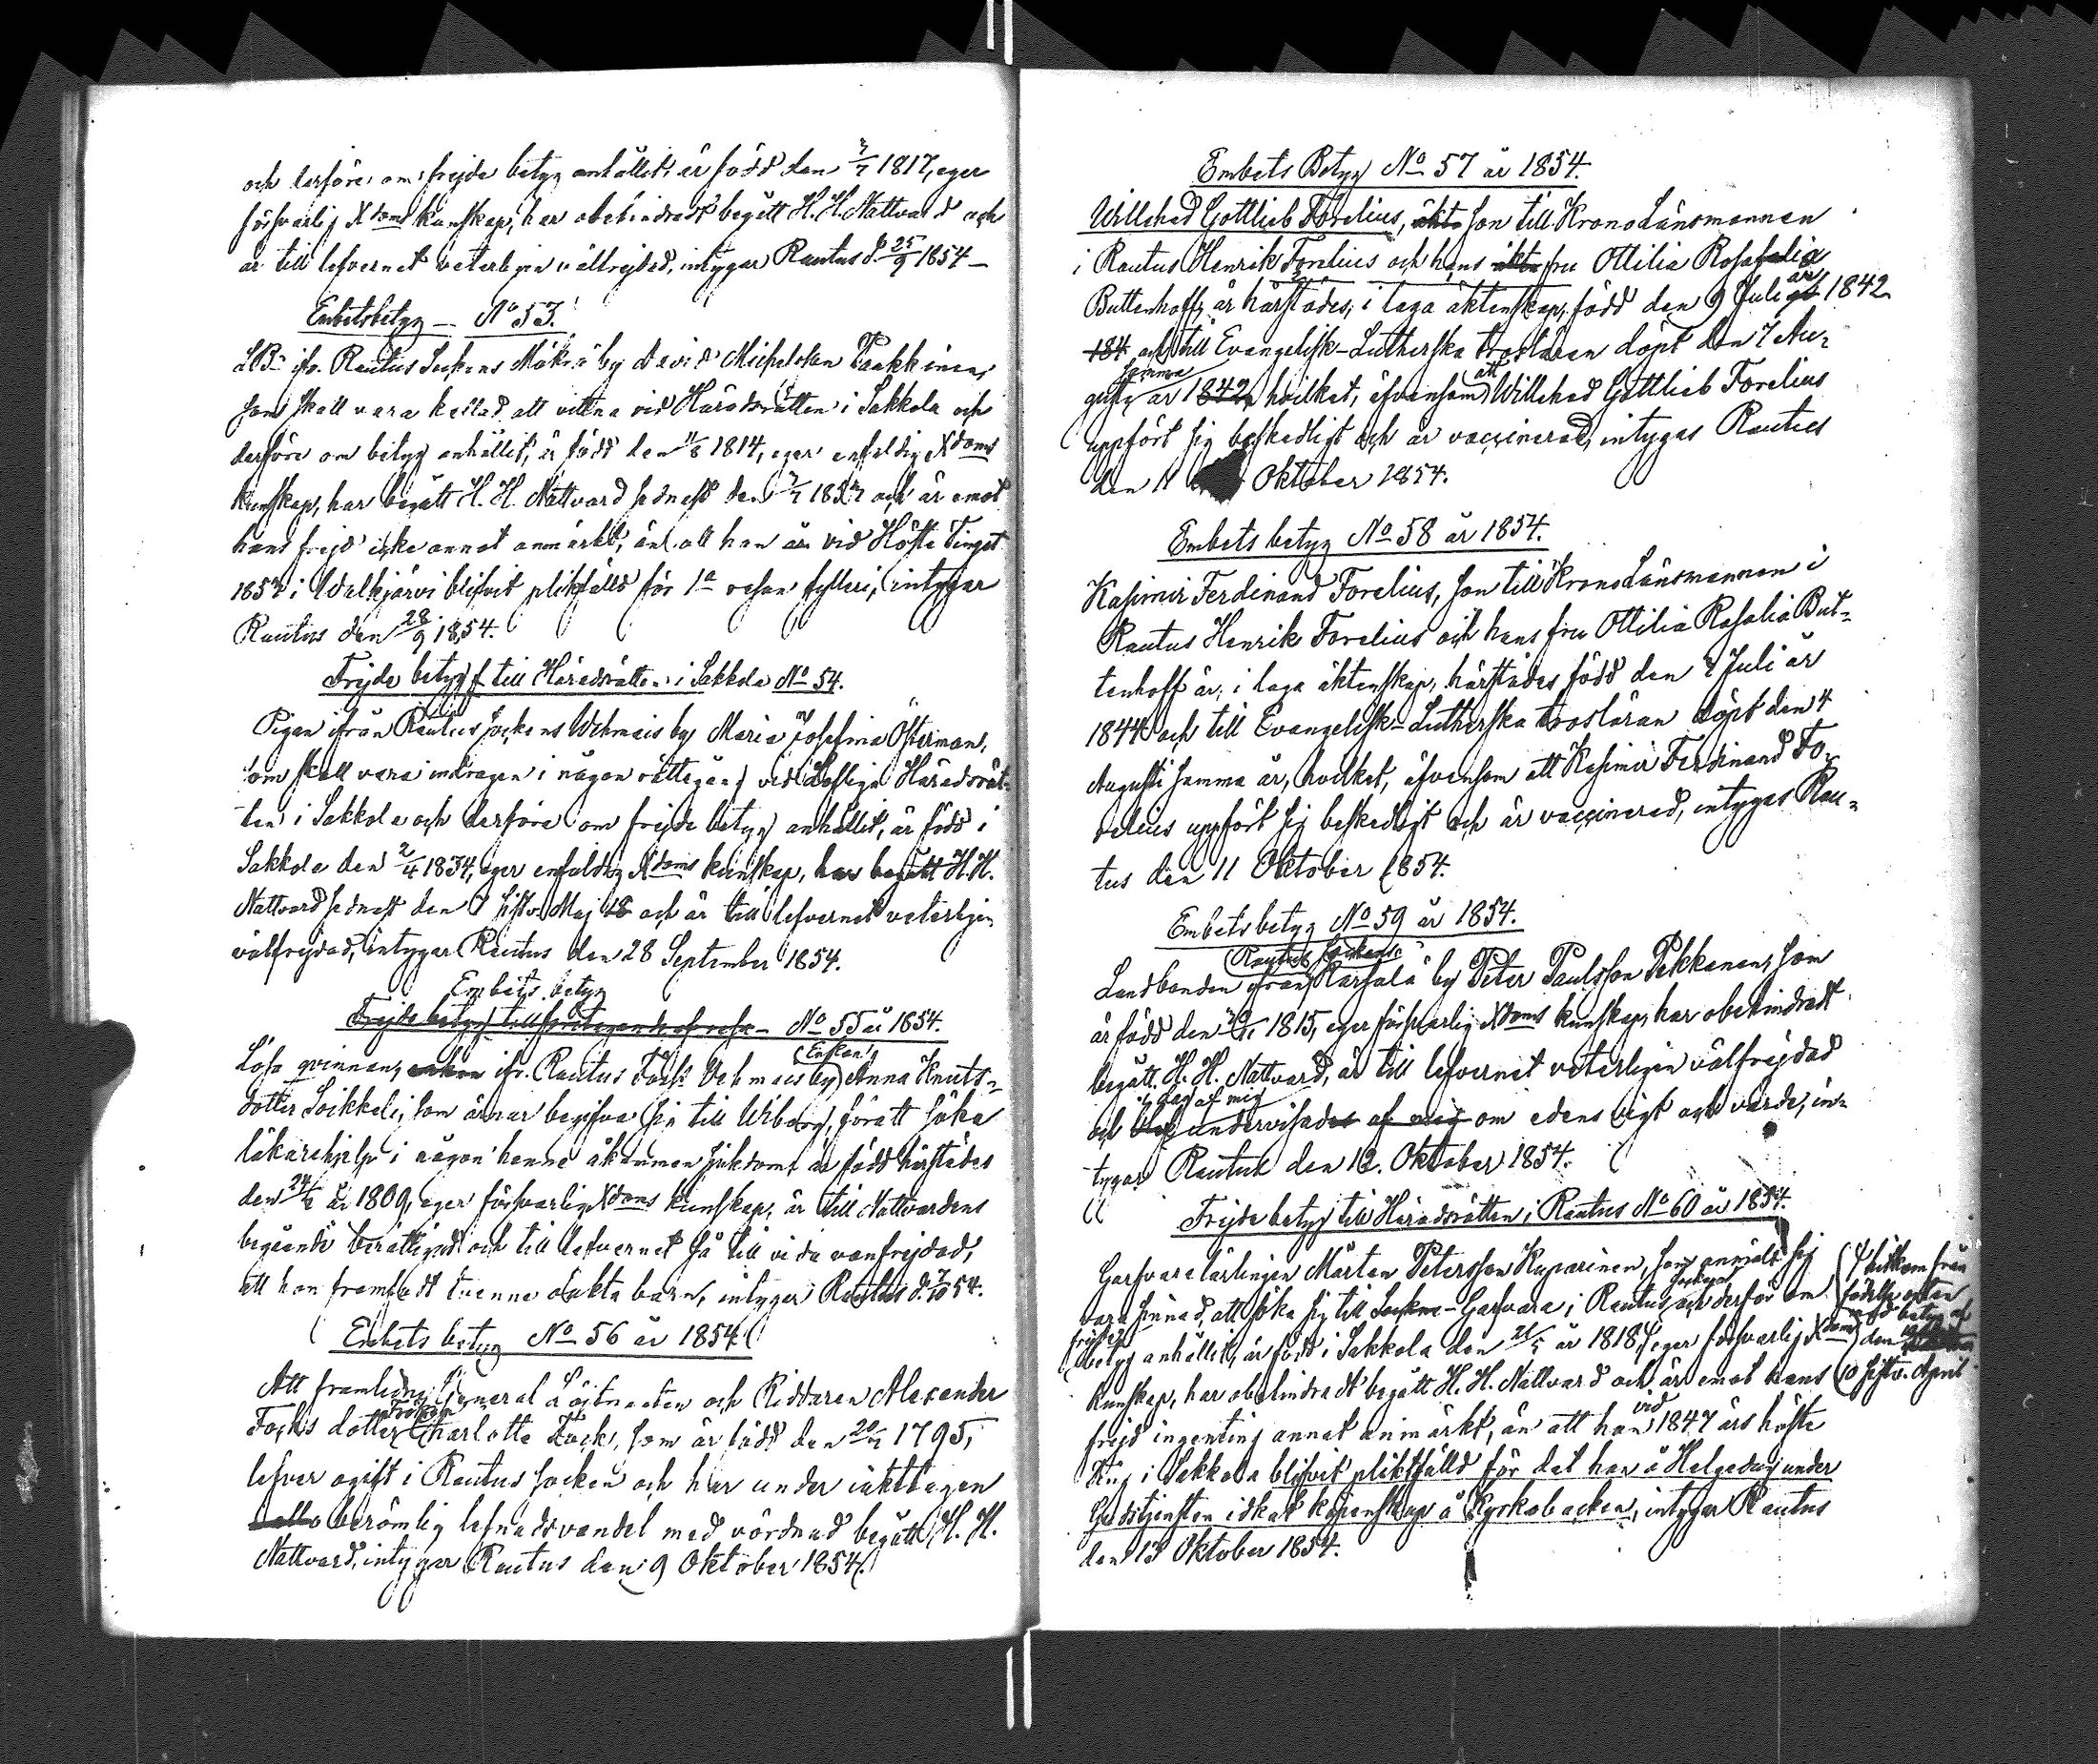 och derföre om frejde betyg anhållit, är född den 7/7 1817, eger
försvarlig Xdoms kunskap, har obehindradt begått H. H. Nattvard och
är till lefvernet veterligen välfrejdad, intygar Rautus d. 25/9 1854 —
Embetsbetyg — No 53.
ifr. Rautus Sockens Mäkrä by David Michelsson Paakkinen,
som skall vara kallad att vittna vid Häradsrätten i Sakkola och
derföre om betyg anhållit, är född den 11/8 1814, eger enfaldig Xdoms
kunskap, har begått H. H. Nattvard sednast den och är emot
hans frejd icke annat anmärkt, än att han är vid Höste Tinget
1852 i Walkjärvi blifvit pliktfälld för 1a resan fylleri, intygar
Rautus den 28/9 1854.
Frejde betyg till Häradsrätten i Sakkola No 54.
Pigan ifrån Rautus Sockens Wehmais by Maria Josefina Österman,
som skall vara indragen i någon rättegång vid Loflige Häradsrät-
ten i Sakkola och derföre om frejde betyg anhållit, är född i
Sakkola den 2/4 1834, eger enfaldig Xdoms kunskap, har begått H. H.
Nattvard sednast den 7 sistv. Maj 18 och är till lefvernet veterligen
välfrejdad, intygar Rautus den 28 September 1854.
Embets betyg
Frejde betyg till företagande af resa — No 55 år 1854.
(Enkan)
Lösa qvinnan, enkan ifr. Rautus Sock: Vehmais by Anna Knuts-
dotter Loikkoli, som ärnar begifva sig till Wiborg, för att söka
läkarehjelp i någon henne åkommen sjukdom, är född härstädes
den 24/2 år 1809, eger försvarlig Xdoms kunskap, är till Nattvardens
begående berättigad och till lefvernet så till vida vanfrejdad,
att hon framfödt tvenne oäkta barn, intygar Rautus d. 7/10 54.
Embets betyg No 56 år 1854.
Att framlidne General Löjtnanten och Riddaren Alexander
Fröken
Focks dotter Charlotte Fock, som är född den 20/2 1795,
lefver ogift i Rautus socken och har under iakttagen
berömlig lefnadsvandel med vördnad begått H. H.
Nattvard, intygar Rautus den 9 Oktober 1854.
Embets Betyg No 57 år 1854.
Willehad Gottlieb Forelius, äkta son till Krono Länsmannen
i Rautus Henrik Forelius och hans äkta fru Ottilia Rosalia
Buttenhoff, är härstädes, i laga äktenskap, född den 9 Juli år 1842
184 och till Evangelisk-Lutherska trosläran döpt den 7 Au-
samma att
gusti år 1842, hvilket, äfvensom Willehad Gottlieb Forelius
uppfört sig beskedligt och är vaccinerad, intygas Rautus
den 11 Oktober 1854.
Embets betyg No 58 år 1854.
Kasimir Ferdinand Forelius, son till Krono Länsmannen i
Rautus Henrik Forelius och hans fru Ottilia Rosalia But-
tenhoff är, i laga äktenskap, härstädes född den 7 Juli år
1844 och till Evangelisk-Lutherska trosläran döpt den 4
Augusti samma år, hvilket, äfvensom att Kasimir Ferdinand Fo-
relius uppfört sig beskedligt och är vaccinerad, intygas Rau-
tus den 11 Oktober 1854.
Embets betyg No 59 år 1854.
(Rautus Sockens)
Landbonden ifrån Raasala by Peter Paulsson Pekkanen, som
är född den 1815, eger försvarlig Xdoms kunskap, har obehindradt
begått H. H. Nattvard, är till lefvernet veterligen välfrejdad
i dag af mig
och blef undervisades af mig om edens vigt och värde, in-
tygar Rautus den 12. Oktober 1854.
Frejde betyg till Häradsrätten i Rautus No 60 år 1854.
Garfvarelärlingen Mårten Petersson Kuparinen, som anmält sig
socken
vara sinnad, att söka sig till Sockne-Garfvare i Rautus och derför om
frejde
betyg anhållit, är född i Sakkola den 21/5 år 1818, eger försvarlig Xdoms
kunskap, har obehindradt begått H. H. Nattvard och är emot hans
vid
frejd ingenting annat anmärkt, än att han 1847 års höste
Ting i Sakkola blifvit pliktfälld för det han å Helgedag under
Gudstjensten idkat köpenskap å Kyrkobacken, intygar Rautus
den 13 Oktober 1854.
hitkom från
födelse orten
med betyg af
den
10 sistv. April